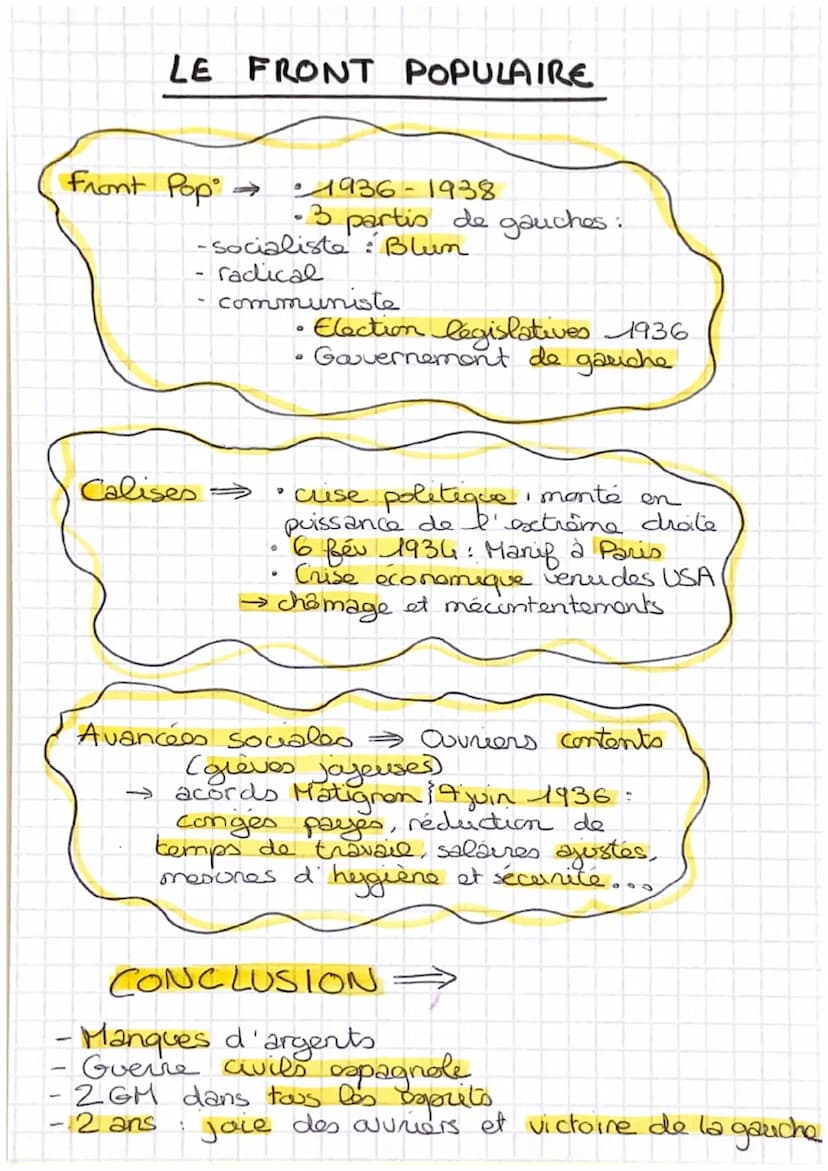 LE FRONT POPULAIRE
Front Pop° → • 1936 - 1938
• 3 partis de gauches :
- socialiste : Blum
- radical
- communiste
• Election législatives 1936
• Gouvernement de gauche
Causes ⇒ • crise politique, monté en
puissance de l'extrême droite
• 6 fév 1934 : Manif à Paris
• Crise économique venu des USA
→ chômage et mécontentements
Avancées sociales ⇒ Ouvriers contents
(grèves joyeuses)
→ acords Matignon juin 1936 :
congés payes, réduction de
temps de travail, salaires ajustés,
mesures d'hygiène et sécurité...
CONCLUSION ⇒
- Manques d'argents
- Guerre civils espagnole
- 2GM dans tous les esprits
- 2 ans : joie des ouvriers et victoire de la gauche